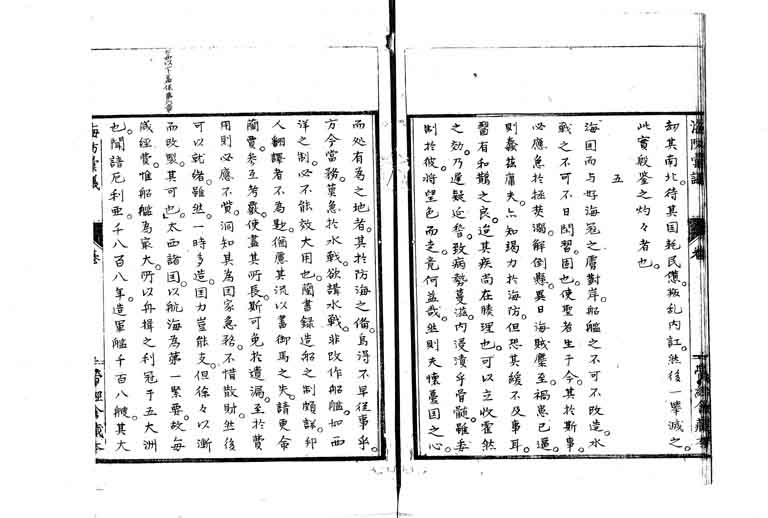 海防彙議
卷
刼其南北待其国乾民憊叛乱内訌然後一擧滅之
此實殷鉴之灼々者也
五
海国而与好海寇之虜對岸船艦之不可不改造水
战之不可不日閒習固也使聖者生于今其於斯事
必應急於拯焚溺解倒懸異日海賊麇至禍患已逼
則蠢兹庸夫亦知竭力於海防但恐其緩不及事耳
醫有和鵲之良迨其疾尚在腠理也可以立收霍然
之効乃遅疑迨稽致病勢蔓滋内浸漬乎骨髓雖委
制於彼將望色而走竟何益哉然則夫懷憂国之心
而处有為之地者其於防海之備烏得不早従事乎
方今當務莫急於水戰欲講水戰非改作船艦如西
洋之制必不能致大用也蘭書録造船之制頗詳却
人翻譯者不為尠猶慮其流以書御馬之失請更命
蘭賈参互考嚴使盡其所長斯可免於遺漏至於费
用則必應不貲洞知其為国家急務不惜散財然後
可以就绪雖然一時多造国力豈能支但徐々以漸
而改製其可也太西諸国以航海為第一緊要故每
歲經費惟船艦為宸大所以舟楫之利冠于五大洲
也聞諳厄利亜千八百八年造軍艦千百八艘其大
海防彙議
卷
労經舍藏本